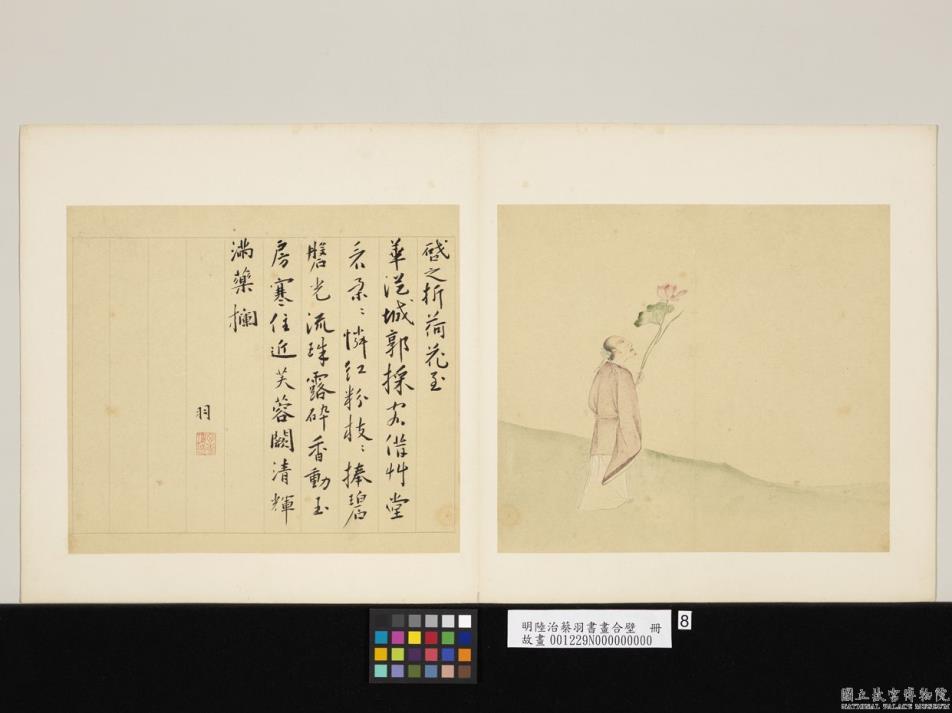 啓之折荷花至
華從城郭採客偕艸堂
看朵〻憐紅粉枝〻捧碧
光流珠露碎香動玉
房寒住近芙蓉闕清輝
滿藥欄
羽
明陸治蔡羽書畫合璧 冊
故畫 001229N000000000
8
國立故宮博物院
NATIONAL PALACE MUSEUM